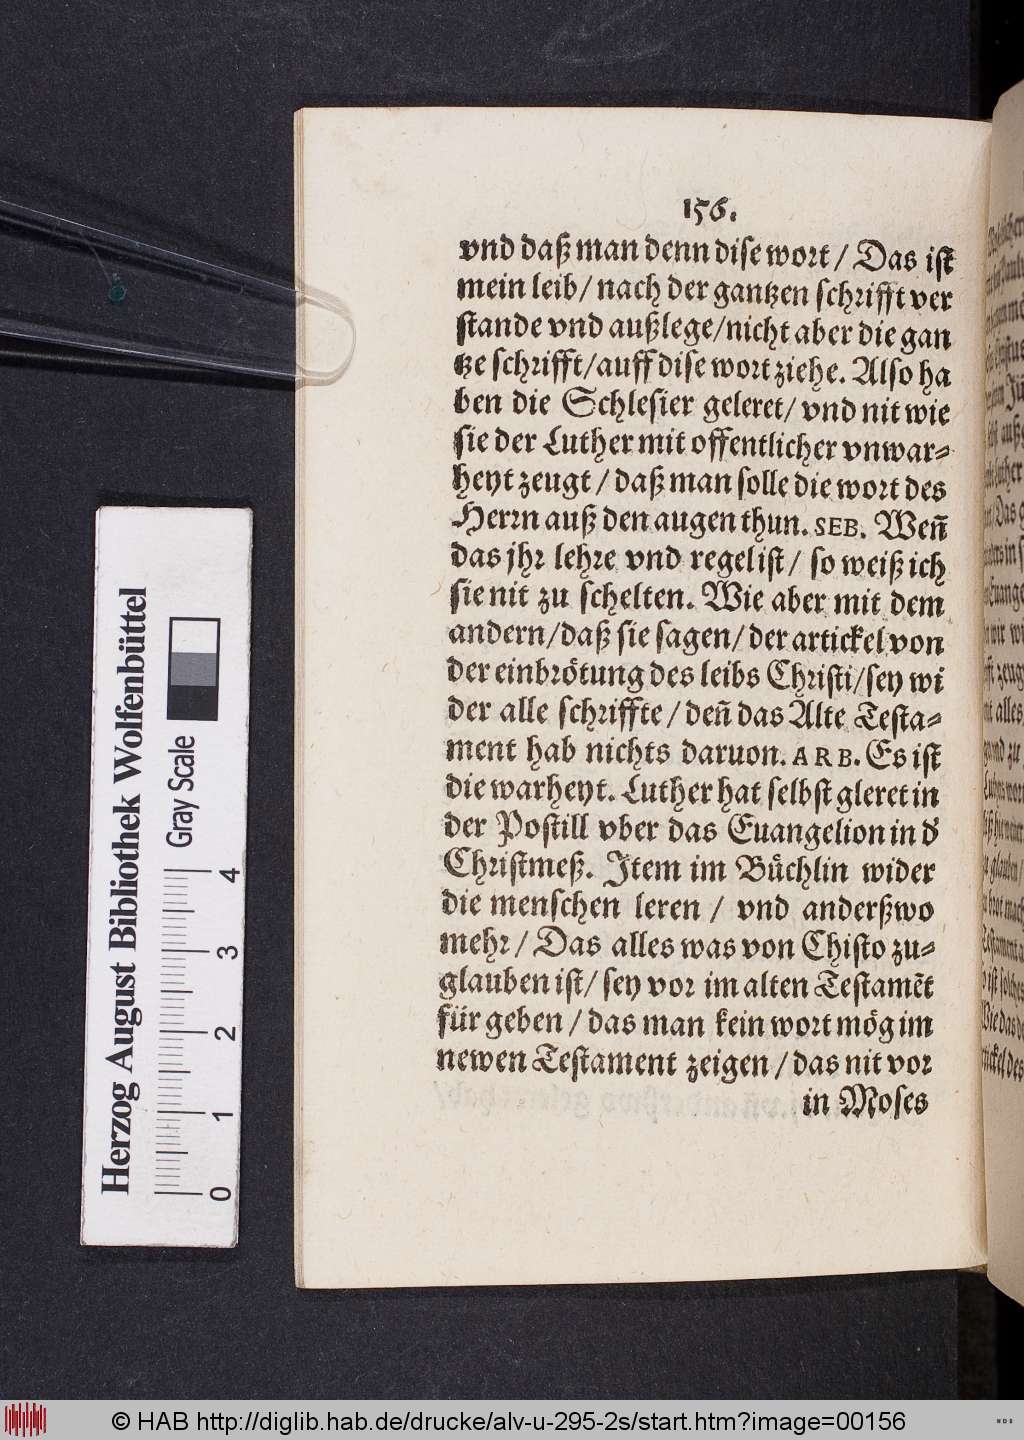 156.
vnd daß man denn dise wort / Das ist
mein leib / nach der gantzen schrifft ver
stande vnd außlege / nicht aber die gan
tze schrifft / auff dise wort ziehe. Also ha
ben die Schlesier geleret / vnd nit wie
sie der Luther mit offentlicher vnwar⸗
heyt zeugt / daß man solle die wort des
Herrn auß den augen thun. SEB. Weñ
das jhr lehre vnd regel ist / so weiß ich
sie nit zu schelten. Wie aber mit dem
andern / daß sie sagen / der artickel von
der einbrötung des leibs Christi / sey wi
der alle schriffte / deñ das Alte Testa⸗
ment hab nichts daruon. ARB. Es ist
die warheyt. Luther hat selbst gleret in
der Postill vber das Euangelion in d'
Christmeß. Item im Bůchlin wider
die menschen leren / vnd anderßwo
mehr / Das alles was von Chisto zu⸗
glauben ist / sey vor im alten Testamẽt
für geben / das man kein wort mög im
newen Testament zeigen / das nit vor
in Moses
Herzog August Bibliothek Wolfenbüttel
Gray Scale
0 1 2 3 4
© HAB http://diglib.hab.de/drucke/alv-u-295-2s/start.htm?image=00156